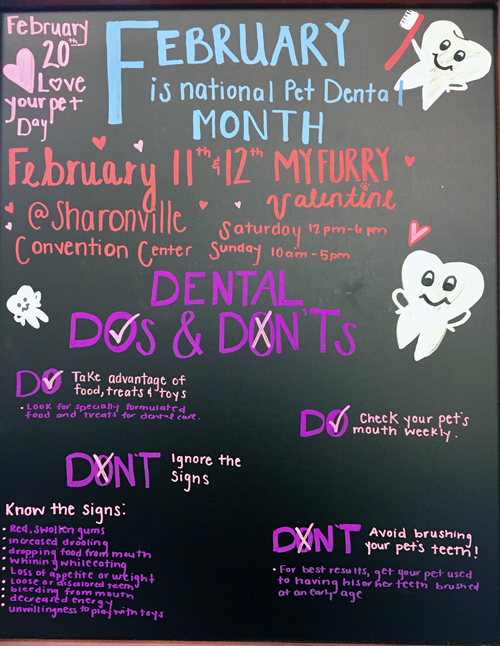 February
20th
Love
your pet
Day
FEBRUARY
is national Pet Dental
MONTH
February 11th & 12th MY FURRY
Valentine
@Sharonville
Convention Center
Saturday 12pm-6pm
Sunday 10am-5pm
DENTAL
DOS & DON'Ts
DO Take advantage of
food, treats & toys
• Look for specially formulated
food and treats for dental care.
DO Check your pet's
mouth weekly.
DON'T Ignore the
signs
Know the signs:
• Red, swollen gums
• increased drooling
• dropping food from mouth
• whining while eating
• Loss of appetite or weight
• Loose or discolored teeth
• bleeding from mouth
• decreased energy
• unwillingness to play with toys
DON'T Avoid brushing
your pet's teeth!
• For best results, get your pet used
to having his or her teeth brushed
at an early age